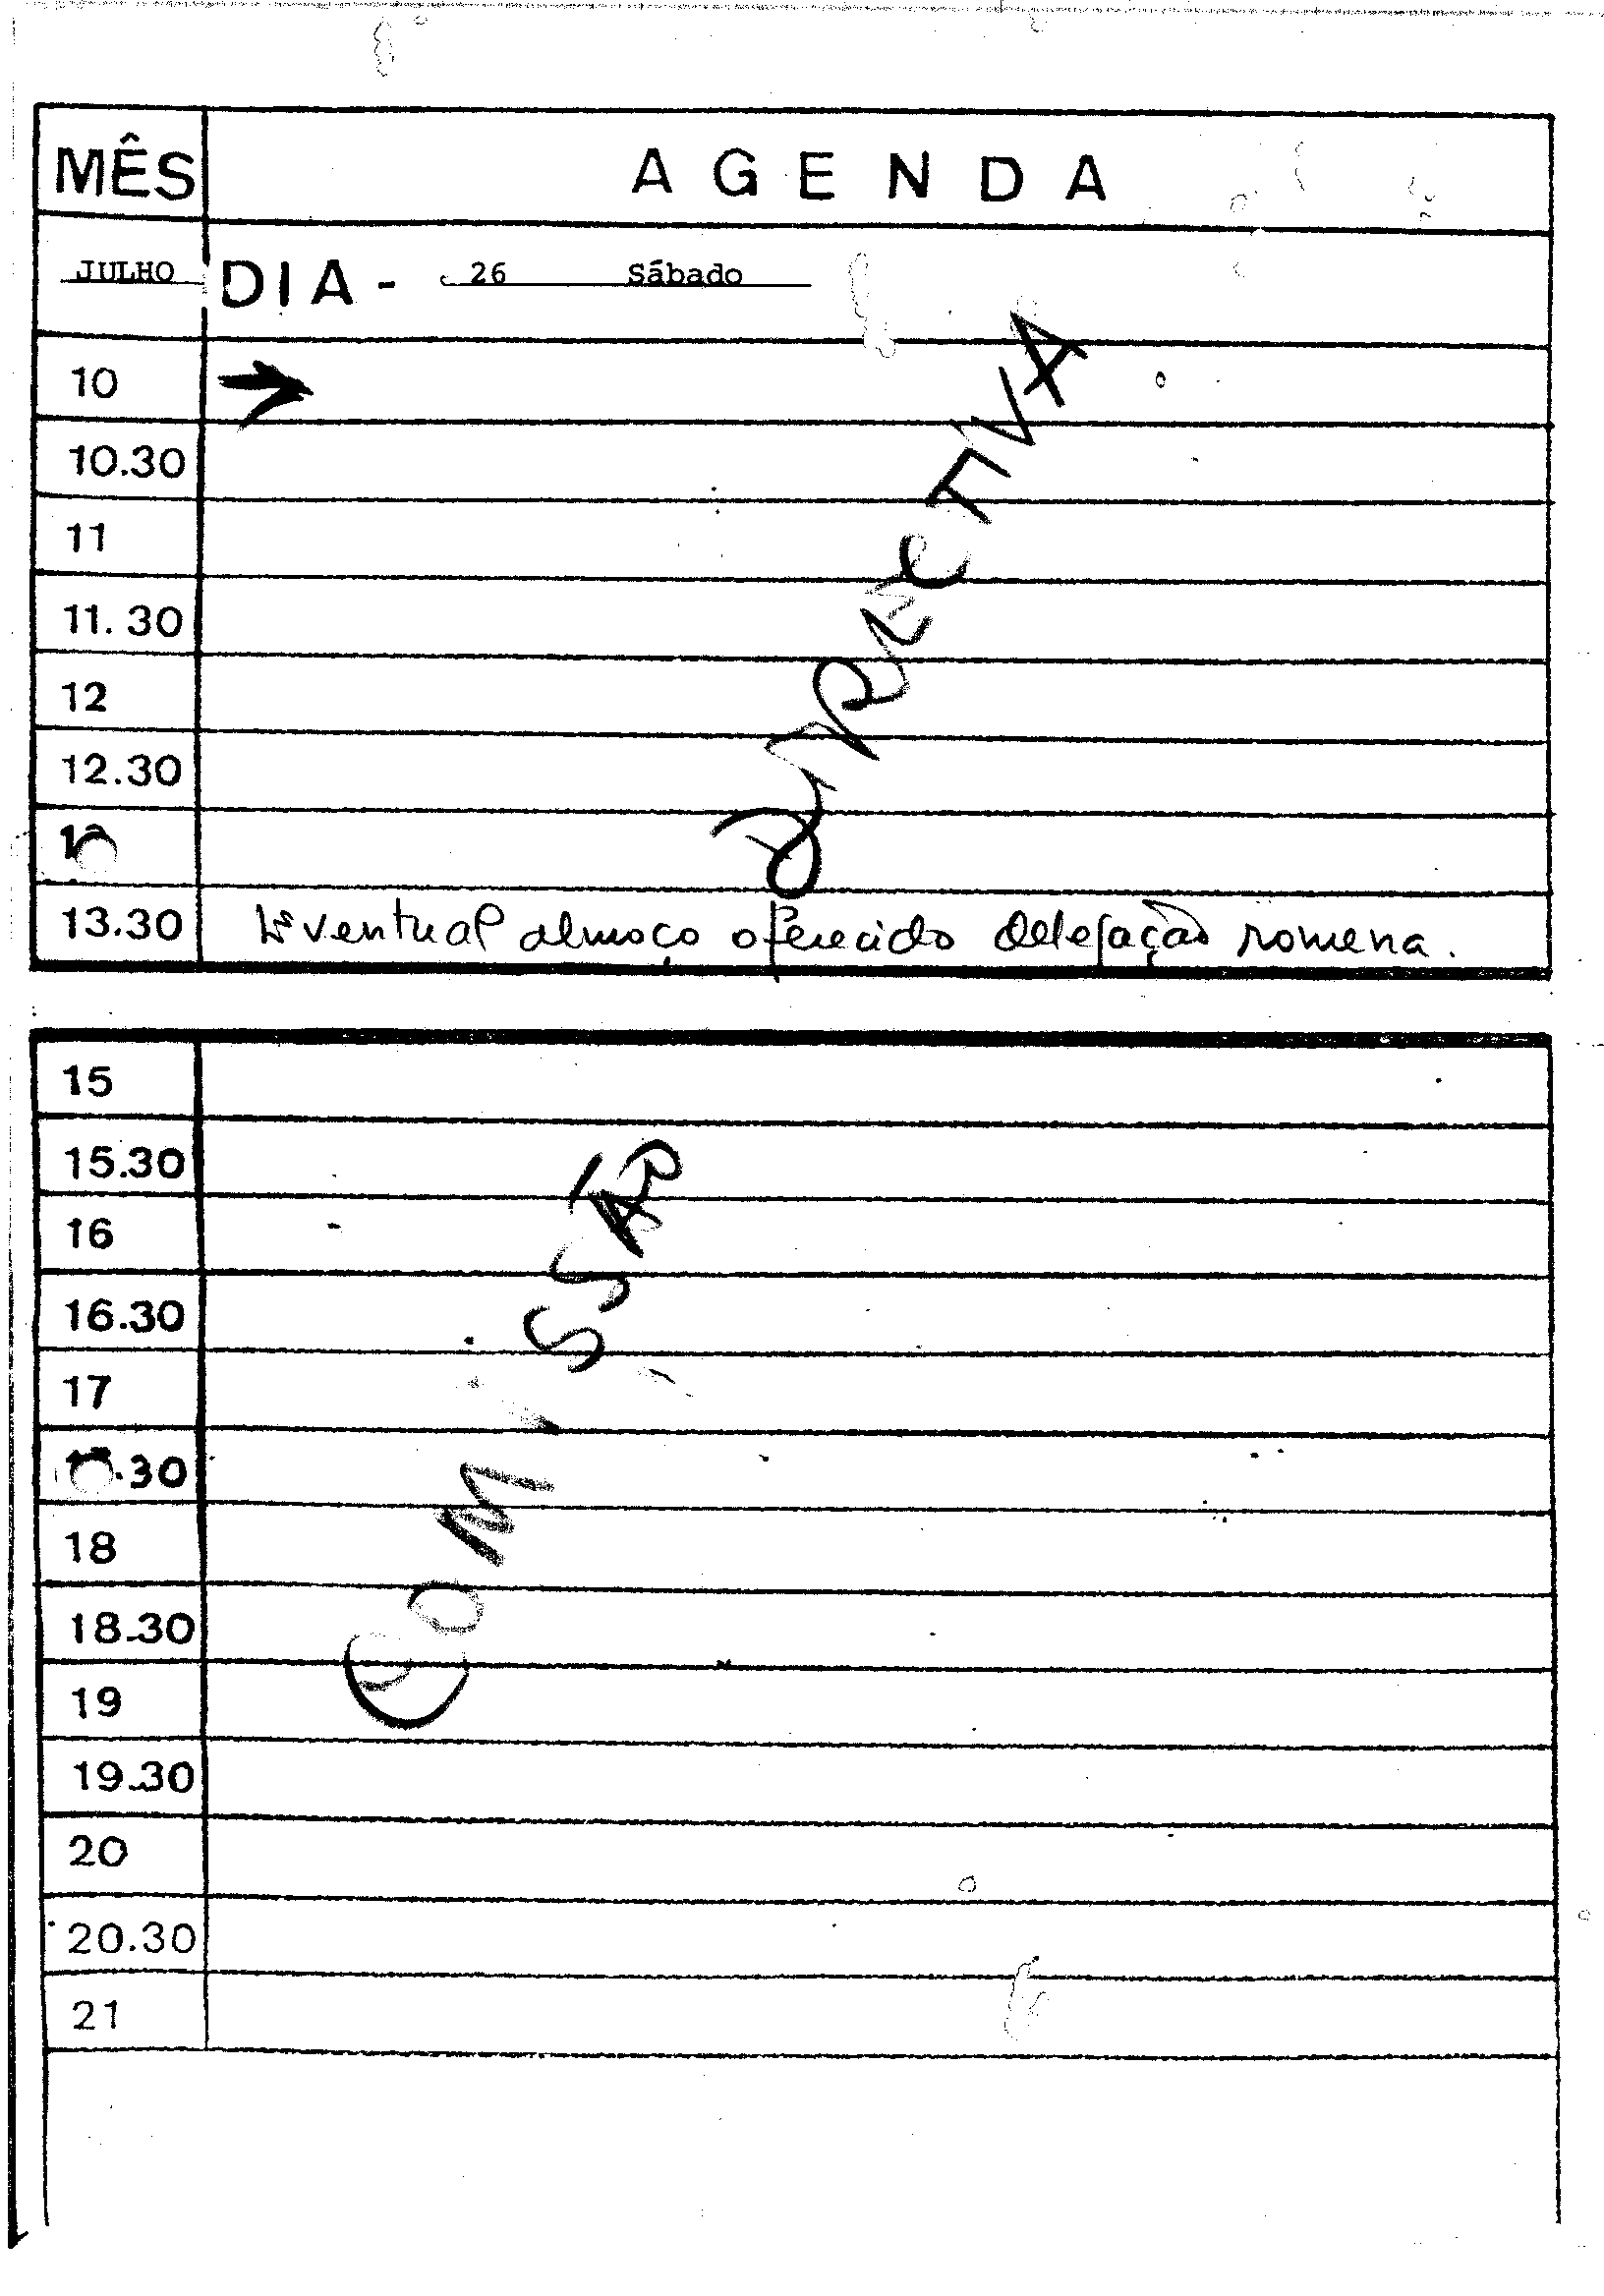 MÊS AGENDA
JULHO DIA - 26 Sábado
10
10.30
11
11.30
12
12.30
13
13.30 Eventual almoço oferecido delegação romena.
DIRECTIVA
15
15.30
16
16.30
17
17.30
18
18.30
19
19.30
20
20.30
21